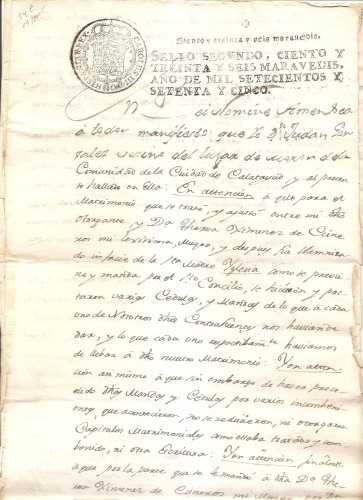 Ciento y treinta y seis maravedis.
SELLO SEGVNDO, CIENTO Y
TREINTA Y SEIS MARAVEDIS,
AÑO DE MIL SETECIENTOS Y
SETENTA Y CINCO.
Nomine Amen Sea
a todos manifiesto que Io Dn Juan
vecino del lugar de de la
Comunidad de la Ciudad de Calatayud, y al presente
hallado en ella: En atencion a que para el
Matrimonio que se trató, y ajustó entre mi dho
otorgante, y Da Ximenez de
mi lexitima Muger, y despues fue
do in facie de la Sta Madre Yglesia como se previe
ne y manda por el Sto Concilio, se hicieron y pac
taron varias Cedulas, y Mandas de lo que á cada
uno de Nosotros dhos Contrahientes nos havian de
dar, y lo que cada uno haviamos
de llebar á dho nuestro Matrimonio: Y en aten
cion asi mismo á que sin embargo de haver prece
dido dhas Mandas y Cedulas por varios inconbeni
entes que acontecieron, no se reduxeron, ni otorgaron
Capitulos Matrimoniales como estaba tratado y con
benido, ni otra Escritura: Y en atencion finalmte
a que por la parte que se le mandó a dha Da
Ximenez de Cisneros mi Muger